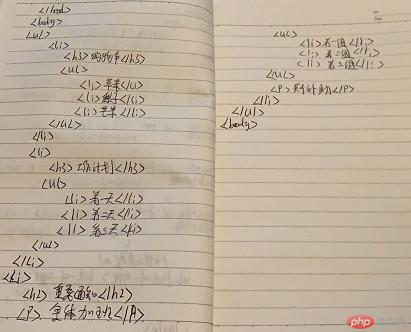 </head>
<body>
<ul>
<li>
<h3>购物车</h3>
<ul>
<li>苹果</li>
<li>梨子</li>
<li>芒果</li>
</ul>
</li>
<li>
<h3>工作计划</h3>
<ul>
<li>第一天</li>
<li>第二天</li>
<li>第三天</li>
</ul>
</li>
<li>
<h2>重要通知</h2>
<P>全体加班</P>
<ul>
<li>第一组</li>
<li>第二组</li>
<li>第三组</li>
<ul>
</li>
</ul>
<body>
php